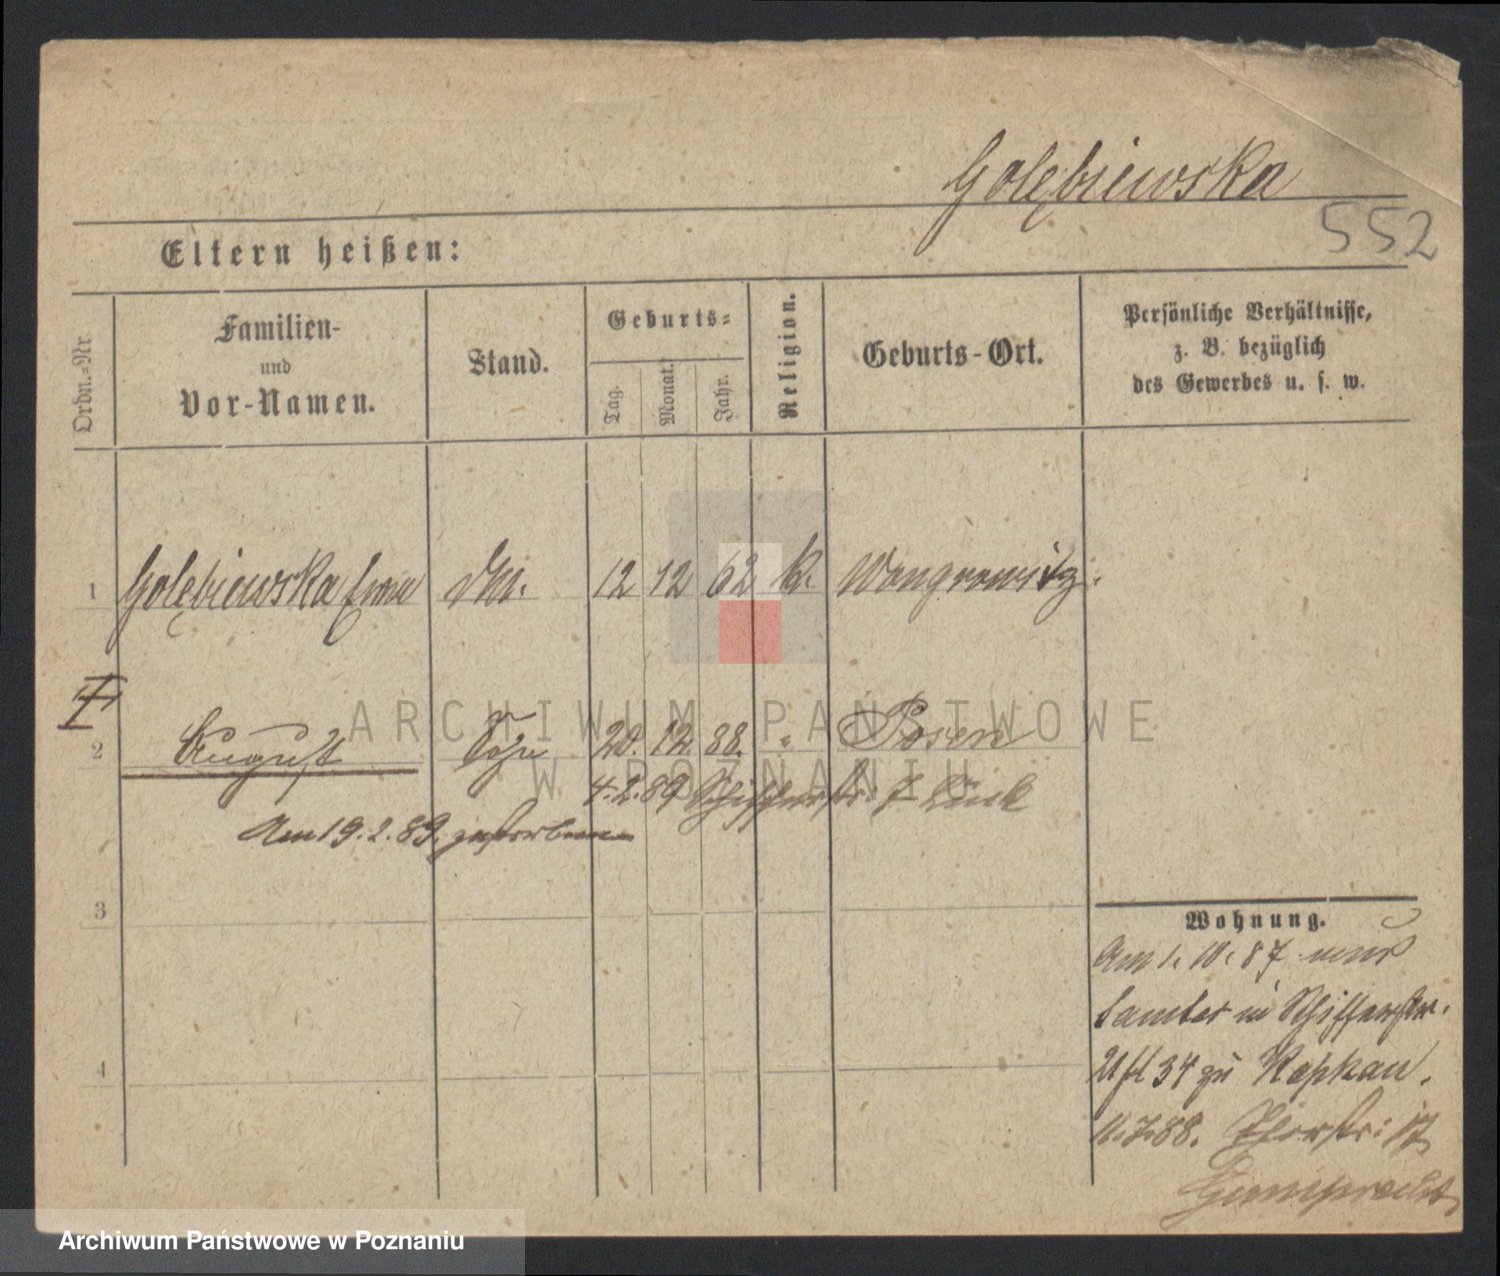 Golębiewska
552
Eltern heißen:
Ordn.-Nr
Familien-
und
Vor-Namen.
Stand.
Geburts-
Tag.
Monat.
Jahr.
Religion.
Geburts-Ort.
Persönliche Verhältnisse,
z. B. bezüglich
des Gewerbes u. s. w.
1 Golębiewska 12 12 62 k. Wongrowitz.
I
2 August Sohn 20. 12. 88. " Posen
4. 2. 89 Schifferstr. 7
Am 19. 2. 89. gestorben
3
4
Wohnung.
Am 1. 10. 87
Samter in Schifferstr.
34 zu
11. 7. 88. 17
Gumprecht
ARCHIWUM PAŃSTWOWE
W POZNANIU
Archiwum Państwowe w Poznaniu